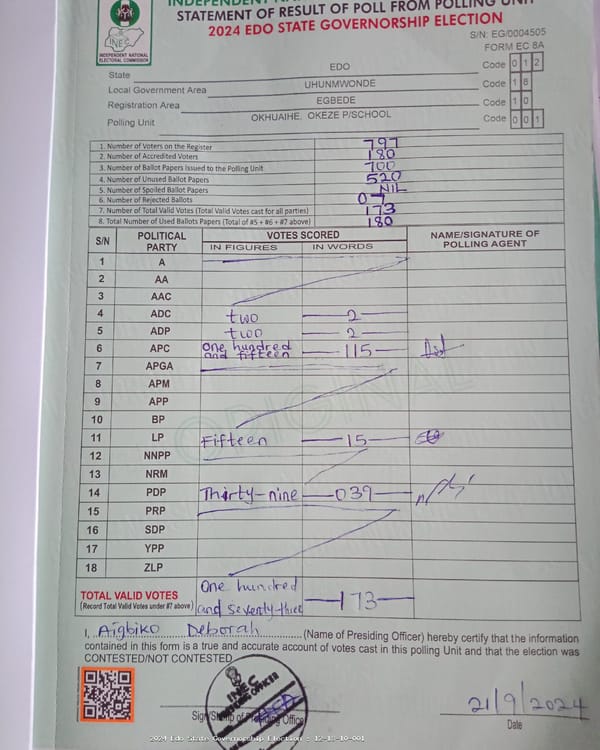 STATEMENT OF RESULT OF POLL FROM POLLING UNIT
2024 EDO STATE GOVERNORSHIP ELECTION
S/N: EG/0004505
FORM EC 8A
INEC
INDEPENDENT NATIONAL
ELECTORAL COMMISSION
State EDO Code 0 1 2
Local Government Area UHUNMWONDE Code 1 8
Registration Area EGBEDE Code 1 0
Polling Unit OKHUAIHE. OKEZE P/SCHOOL Code 0 0 1
1. Number of Voters on the Register 797
2. Number of Accredited Voters 180
3. Number of Ballot Papers Issued to the Polling Unit 700
4. Number of Unused Ballot Papers 520
5. Number of Spoiled Ballot Papers NIL
6. Number of Rejected Ballots 07
7. Number of Total Valid Votes (Total Valid Votes cast for all parties) 173
8. Total Number of Used Ballots Papers (Total of #5 + #6 + #7 above) 180
S/N POLITICAL PARTY VOTES SCORED NAME/SIGNATURE OF POLLING AGENT
IN FIGURES IN WORDS
1 A
2 AA
3 AAC
4 ADC two 2
5 ADP two 2
6 APC One hundred and fifteen 115
7 APGA
8 APM
9 APP
10 BP
11 LP Fifteen 15
12 NNPP
13 NRM
14 PDP Thirty-nine 039
15 PRP
16 SDP
17 YPP
18 ZLP
ORIGINAL
TOTAL VALID VOTES One hundred
(Record Total Valid Votes under #7 above) and seventy-three 173
I, Aigbiko Deborah (Name of Presiding Officer) hereby certify that the information
contained in this form is a true and accurate account of votes cast in this polling Unit and that the election was
CONTESTED/NOT CONTESTED
INEC
Sign/Stamp of Presiding Office
21/9/2024
Date
2024 Edo State Governorship Election : 12-18-10-001